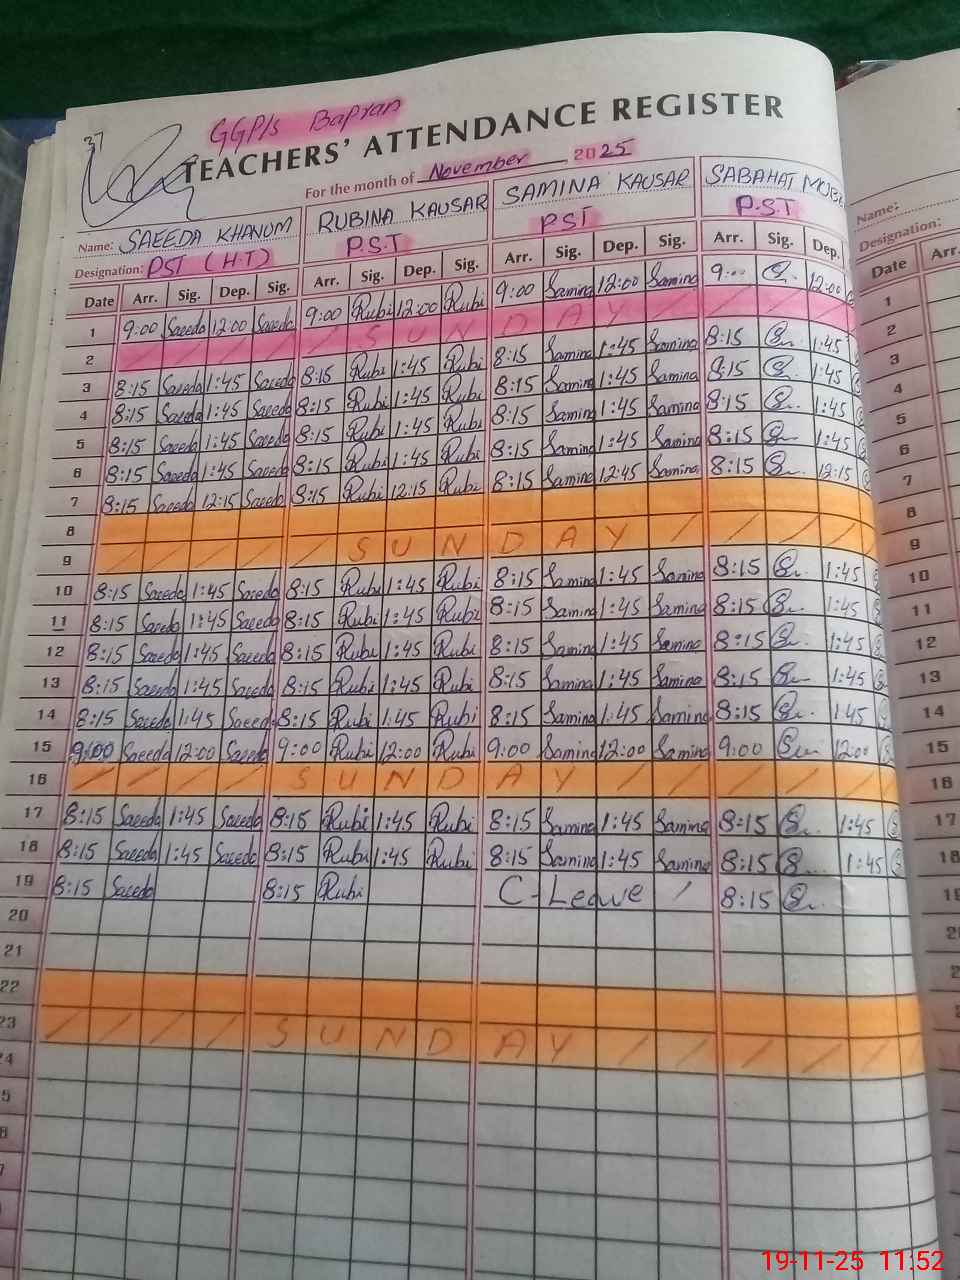 37
GGP/s Bapran
TEACHERS' ATTENDANCE REGISTER
For the month of November 2025
Name: SAEEDA KHANUM RUBINA KAUSAR SAMINA KAUSAR SABAHAT
Designation: PST (H.T) P.S.T PST P.S.T
Date Arr. Sig. Dep. Sig. Arr. Sig. Dep. Sig. Arr. Sig. Dep. Sig. Arr. Sig. Dep.
1 9:00 Saeeda 12:00 Saeeda 9:00 Rubi 12:00 Rubi 9:00 Samina 12:00 Samina 9:00 12:00
2 SUNDAY
3 8:15 Saeeda 1:45 Saeeda 8:15 Rubi 1:45 Rubi 8:15 Samina 1:45 Samina 8:15 1:45
4 8:15 Saeeda 1:45 Saeeda 8:15 Rubi 1:45 Rubi 8:15 Samina 1:45 Samina 8:15 1:45
5 8:15 Saeeda 1:45 Saeeda 8:15 Rubi 1:45 Rubi 8:15 Samina 1:45 Samina 8:15 1:45
6 8:15 Saeeda 1:45 Saeeda 8:15 Rubi 1:45 Rubi 8:15 Samina 1:45 Samina 8:15 1:45
7 8:15 Saeeda 12:15 Saeeda 8:15 Rubi 12:15 Rubi 8:15 Samina 12:45 Samina 8:15 12:15
8
9 SUNDAY
10 8:15 Saeeda 1:45 Saeeda 8:15 Rubi 1:45 Rubi 8:15 Samina 1:45 Samina 8:15 1:45
11 8:15 Saeeda 1:45 Saeeda 8:15 Rubi 1:45 Rubi 8:15 Samina 1:45 Samina 8:15 1:45
12 8:15 Saeeda 1:45 Saeeda 8:15 Rubi 1:45 Rubi 8:15 Samina 1:45 Samina 8:15 1:45
13 8:15 Saeeda 1:45 Saeeda 8:15 Rubi 1:45 Rubi 8:15 Samina 1:45 Samina 8:15 1:45
14 8:15 Saeeda 1:45 Saeeda 8:15 Rubi 1:45 Rubi 8:15 Samina 1:45 Samina 8:15 1:45
15 9:00 Saeeda 12:00 Saeeda 9:00 Rubi 12:00 Rubi 9:00 Samina 12:00 Samina 9:00 12:00
16 SUNDAY
17 8:15 Saeeda 1:45 Saeeda 8:15 Rubi 1:45 Rubi 8:15 Samina 1:45 Samina 8:15 1:45
18 8:15 Saeeda 1:45 Saeeda 8:15 Rubi 1:45 Rubi 8:15 Samina 1:45 Samina 8:15 1:45
19 8:15 Saeeda 8:15 Rubi C-Leave 8:15
20
21
22
23 SUNDAY
Name:
Designation:
Date Arr.
1
2
3
4
5
6
7
8
9
10
11
12
13
14
15
16
17
18
19-11-25 11:52